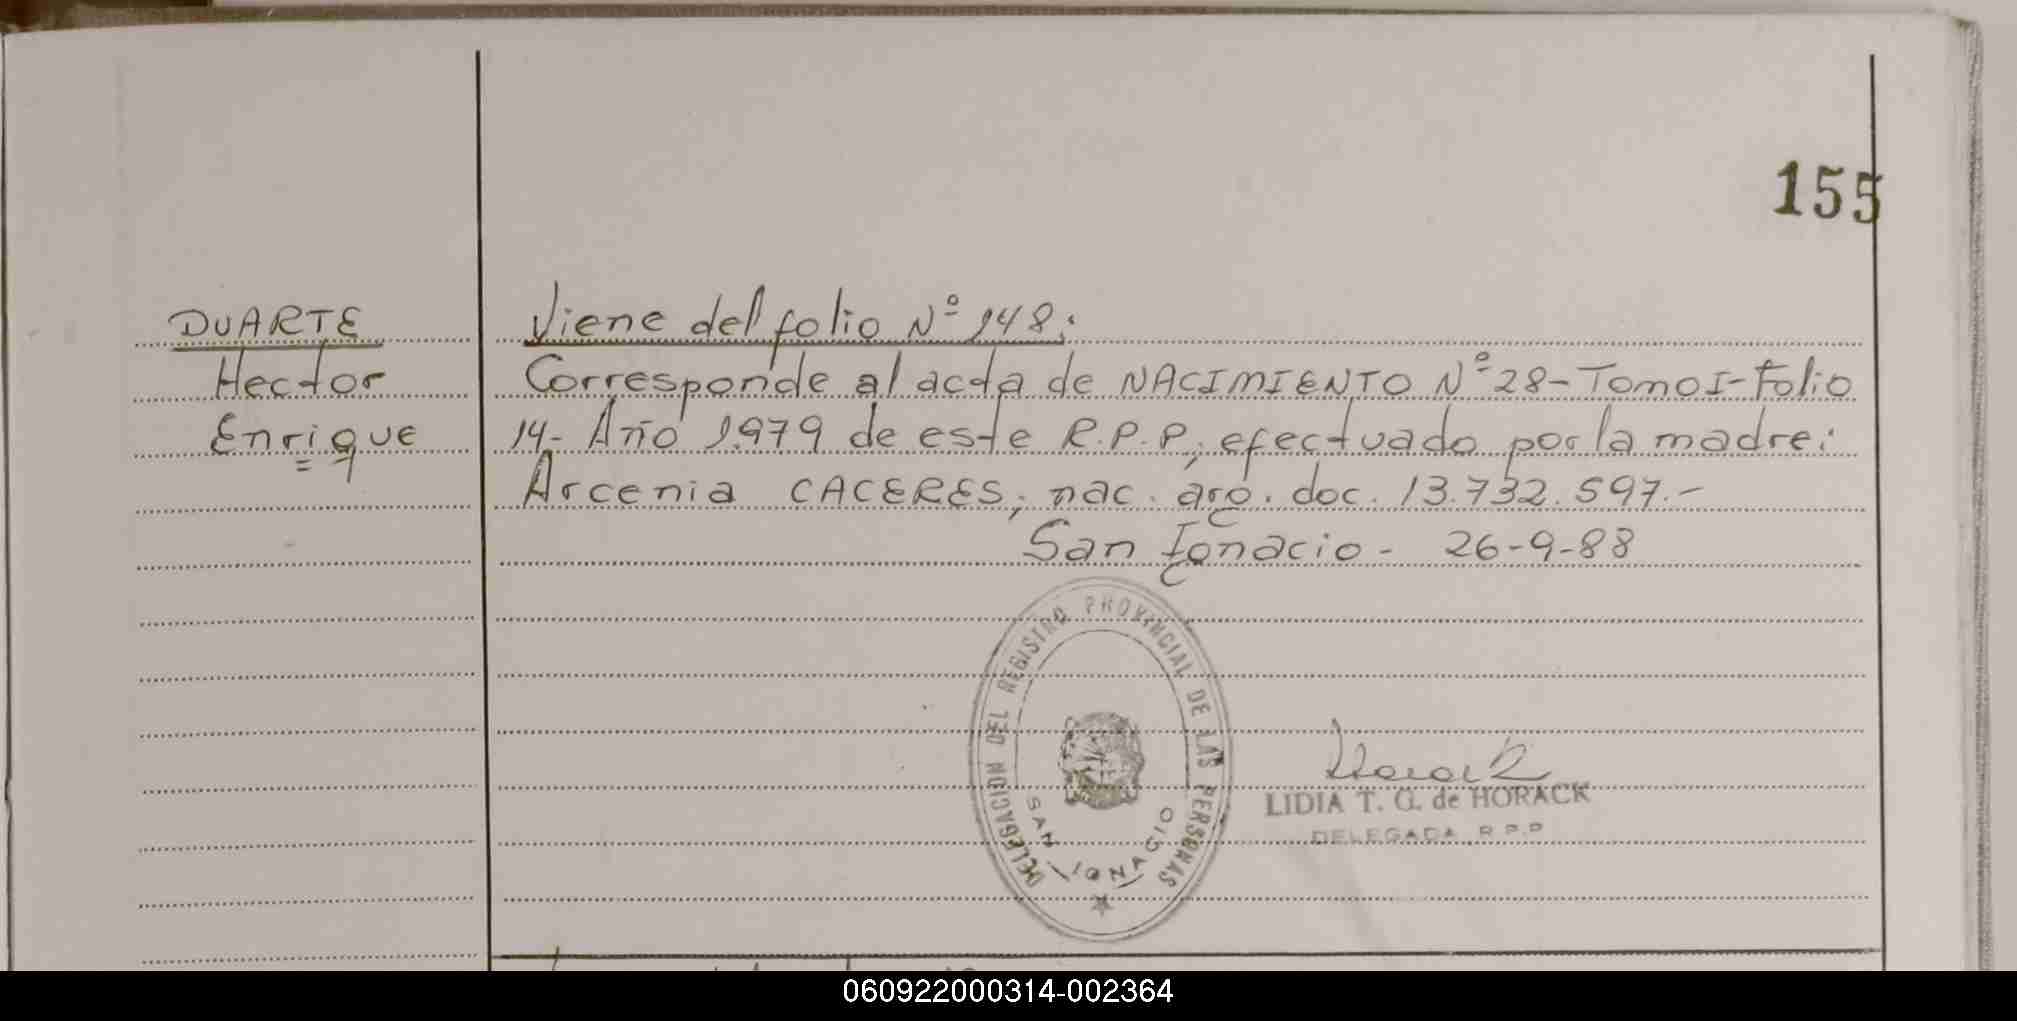 155
DUARTE
Hector
Enrique
Viene del folio Nº 148:
Corresponde al acta de NACIMIENTO Nº 28-Tomo I-Folio
14- Año 1.979 de este R.P.P, efectuado por la madre:
Arcenia CACERES, nac. arg. doc. 13.732.597.-
San Ignacio - 26-9-88
DELEGACION DEL REGISTRO PROVINCIAL DE LAS PERSONAS
SAN IGNACIO
Horack
LIDIA T. G. de HORACK
DELEGADA R.P.P
060922000314-002364